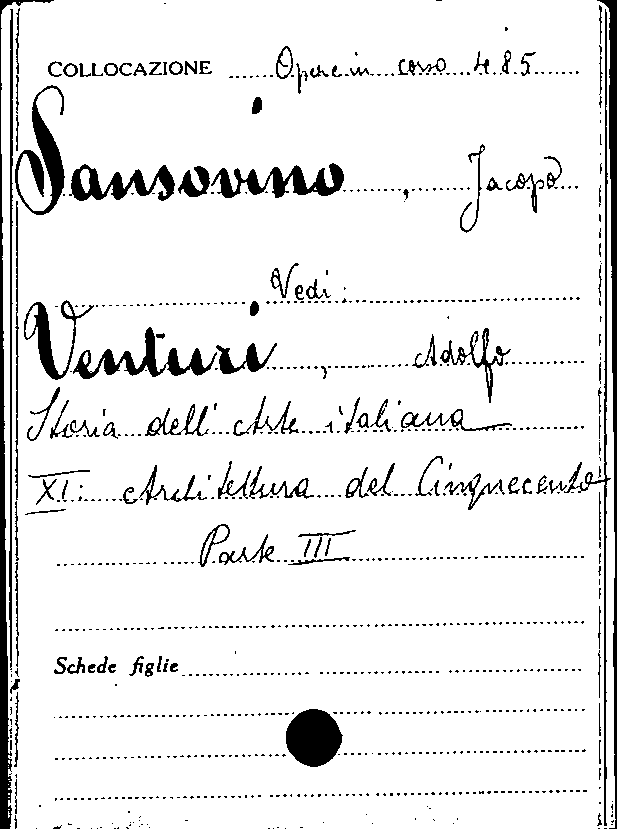 COLLOCAZIONE Opere in corso 485
Sansovino, Jacopo
Vedi:
Venturi, Adolfo
Storia dell'Arte italiana
XI: Architettura del Cinquecento
Parte III
Schede figlie